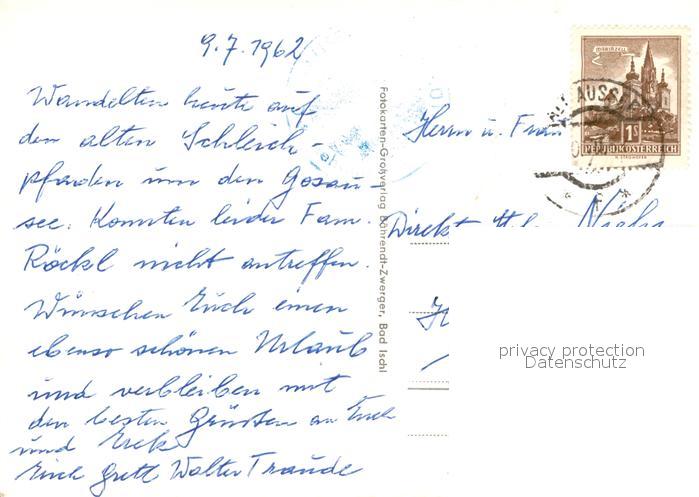 9.7.1962
Wandelten heute auf
den alten Schleich-
pfaden um den Gosau-
see. Konnten leider Fam.
Röckl nicht antreffen.
Wünschen Euch einen
ebenso schönen Urlaub
und verbleiben mit
den besten Grüssen an Euch
und
Euch Gretl Walter Traude
Fotokarten-Großverlag Böhrendt-Zwerger, Bad Ischl
Herrn u. Frau
Direkt
MARIAZELL
1S
REPUBLIK ÖSTERREICH
ALT AUSSEE
privacy protection
Datenschutz